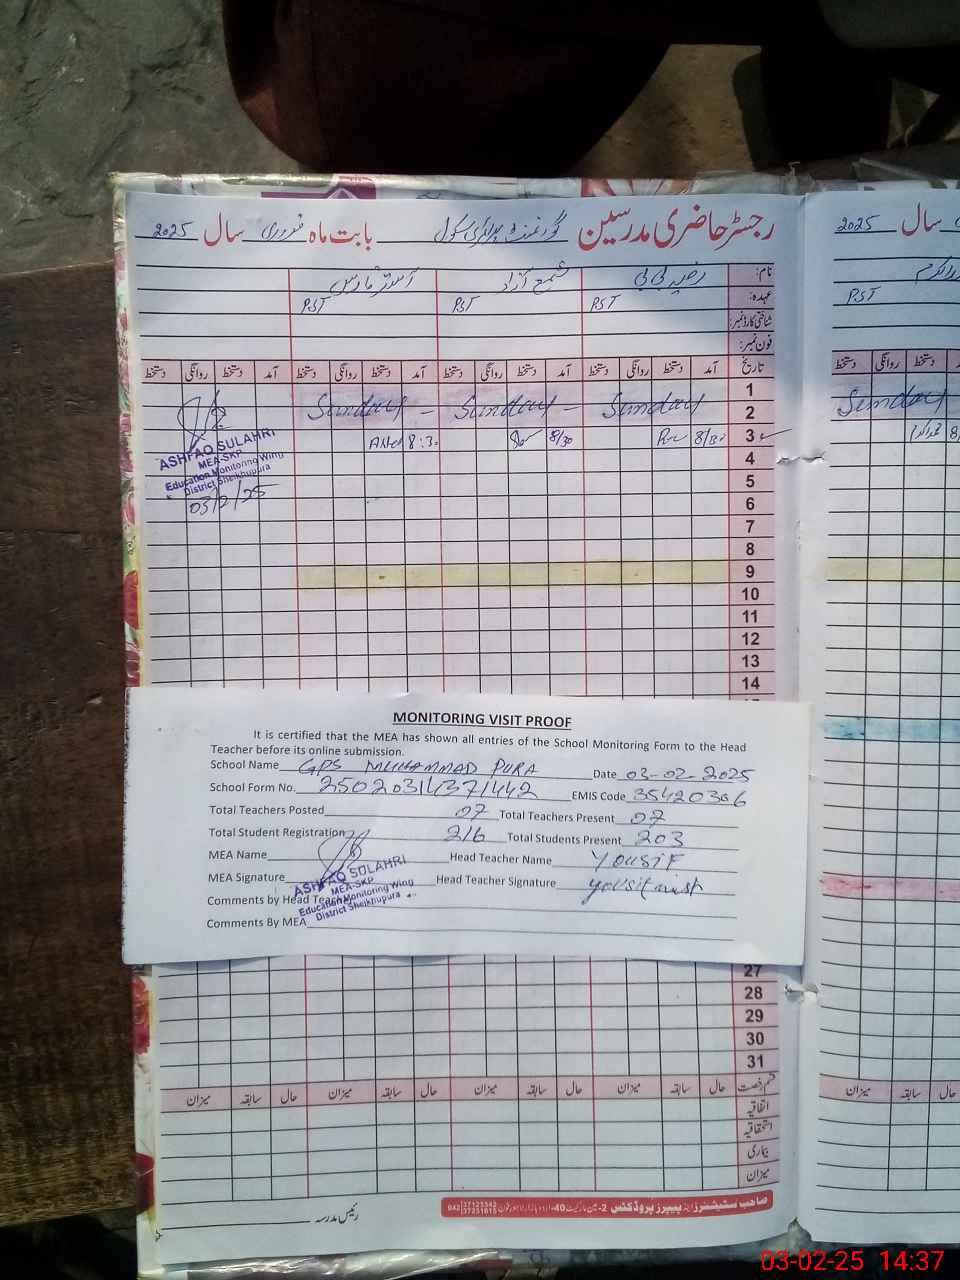 رجسٹر حاضری مدرسین گورنمنٹ پرائمری سکول بابت ماہ فروری سال 2025
نام: رضیہ بی بی شمع آزاد
عہدہ: PST PST PST
شناختی کارڈ نمبر:
فون نمبر:
تاریخ آمد دستخط روانگی دستخط آمد دستخط روانگی دستخط آمد دستخط روانگی دستخط آمد دستخط روانگی دستخط
1
2 Sunday Sunday Sunday
3 8/30 8/30 8:30
ASHFAQ SULAHRI
MEA-SKP
Education Monitoring Wing
District Sheikhupura
03/2/25
4
5
6
7
8
9
10
11
12
13
14
MONITORING VISIT PROOF
It is certified that the MEA has shown all entries of the School Monitoring Form to the Head
Teacher before its online submission.
School Name GPS MUHAMMAD PURA Date 03-02-2025
School Form No. 25020314371442 EMIS Code 35420306
Total Teachers Posted 07 Total Teachers Present 07
Total Student Registration 216 Total Students Present 203
MEA Name Head Teacher Name YOUSIF
MEA Signature Head Teacher Signature
Comments by Head Teach
ASHFAQ SULAHRI
MEA-SKP
Education Monitoring Wing
District Sheikhupura
Comments By MEA
27
28
29
30
31
قسم رخصت حال سابقہ میزان حال سابقہ میزان حال سابقہ میزان حال سابقہ میزان
اتفاقیہ
استحقاقیہ
بیماری
میزان
رئیس مدرسہ
صاحب سٹیشنرز اینڈ پیپرز پروڈکٹس
2025 سال
PST
Sunday
دستخط روانگی دستخط
میزان سابقہ حال
03-02-25 14:37